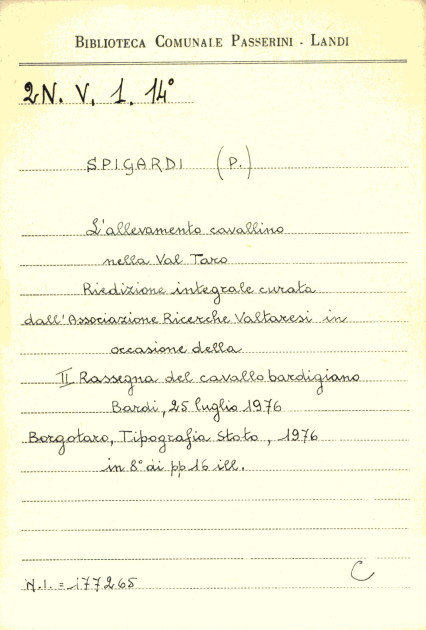 BIBLIOTECA COMUNALE PASSERINI - LANDI
2N. V. 1. 14°
SPIGARDI (P.)
L'allevamento cavallino
nella Val Taro
Riedizione integrale curata
dall'Associazione Ricerche Valtaresi in
occasione della
II Rassegna del cavallo bardigiano
Bardi, 25 luglio 1976
Borgotaro, Tipografia Stoto, 1976
in 8° di pp 16 ill.
N.I. = 177265
C